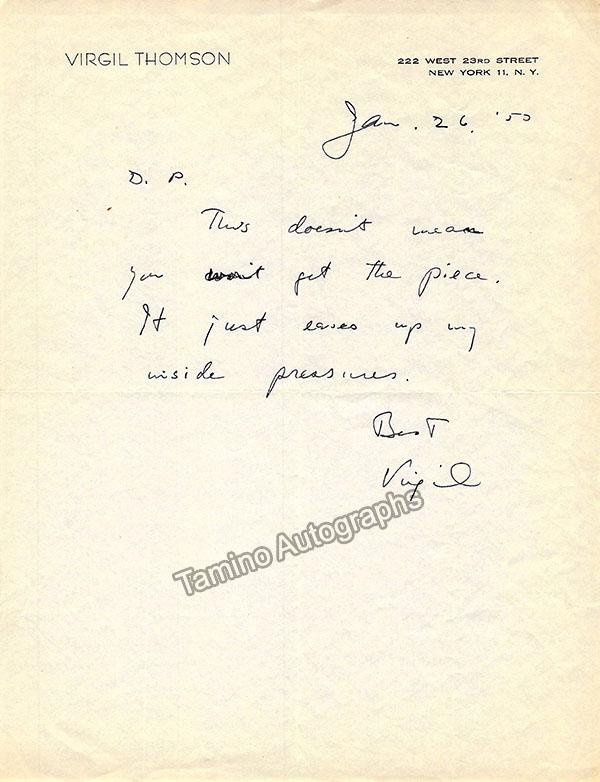 VIRGIL THOMSON
222 WEST 23RD STREET
NEW YORK 11, N. Y.
Jan. 26, '50
D. P.
This doesn't mean
you won't get the piece.
It just eases up my
inside pressures.
Best
Virgil
Tamino Autographs